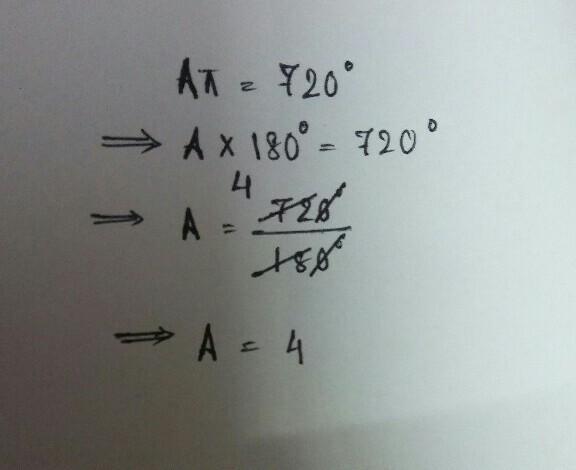 Aπ = 720°
⇒ A × 180° = 720°
⇒ A = 4 720°/180°
⇒ A = 4